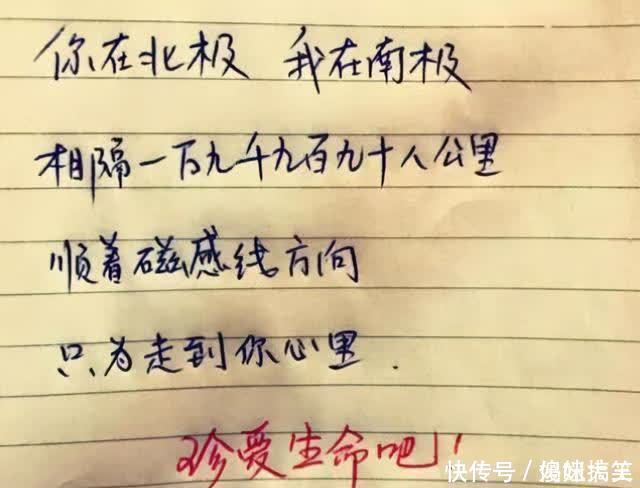 你在北极 我在南极
相隔一万九千九百九十八公里
顺着磁感线方向
只为走到你心里.
珍爱生命吧!!
快传号/媳妹搞笑